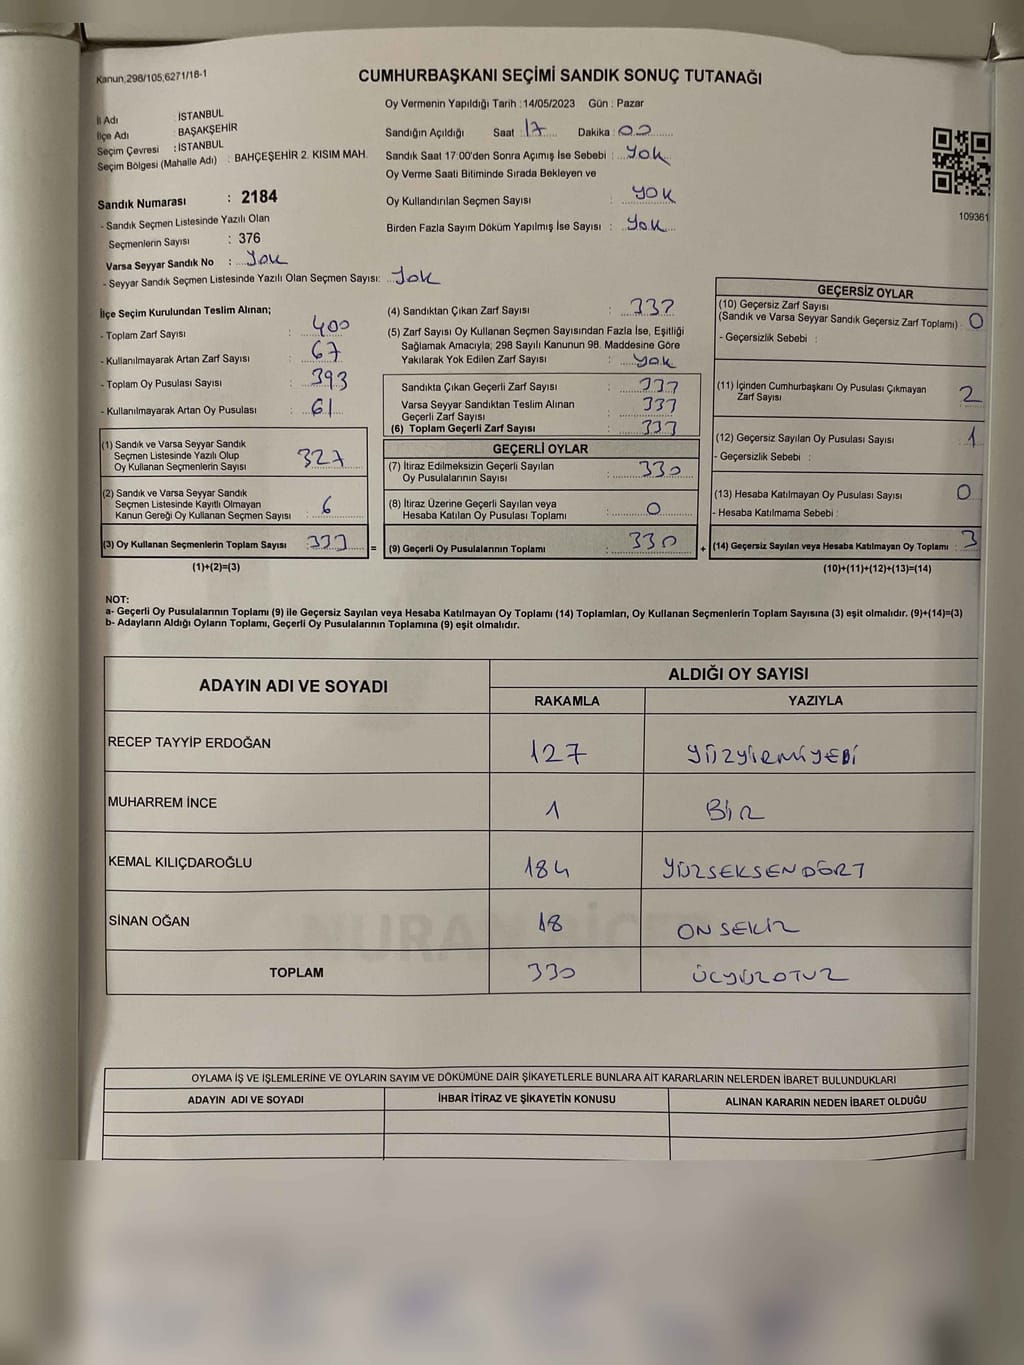 Kanun;298/105,6271/18-1
CUMHURBAŞKANI SEÇİMİ SANDIK SONUÇ TUTANAĞI
Oy Vermenin Yapıldığı Tarih :14/05/2023 Gün : Pazar
İl Adı : İSTANBUL
İlçe Adı : BAŞAKŞEHİR
Seçim Çevresi : İSTANBUL
Seçim Bölgesi (Mahalle Adı) : BAHÇEŞEHİR 2. KISIM MAH.
Sandığın Açıldığı Saat : 17 Dakika : 00
Sandık Saat 17:00'den Sonra Açımış İse Sebebi : Yok
Oy Verme Saati Bitiminde Sırada Bekleyen ve
Oy Kullandırılan Seçmen Sayısı : YOK
Birden Fazla Sayım Döküm Yapılmış İse Sayısı : Yok
109361
Sandık Numarası : 2184
- Sandık Seçmen Listesinde Yazılı Olan
Seçmenlerin Sayısı : 376
Varsa Seyyar Sandık No : Yok
- Seyyar Sandık Seçmen Listesinde Yazılı Olan Seçmen Sayısı: Yok
İlçe Seçim Kurulundan Teslim Alınan;
- Toplam Zarf Sayısı : 400
- Kullanılmayarak Artan Zarf Sayısı : 67
- Toplam Oy Pusulası Sayısı : 393
- Kullanılmayarak Artan Oy Pusulası : 61
(1) Sandık ve Varsa Seyyar Sandık
Seçmen Listesinde Yazılı Olup
Oy Kullanan Seçmenlerin Sayısı : 327
(2) Sandık ve Varsa Seyyar Sandık
Seçmen Listesinde Kayıtlı Olmayan
Kanun Gereği Oy Kullanan Seçmen Sayısı : 6
(3) Oy Kullanan Seçmenlerin Toplam Sayısı : 333 =
(1)+(2)=(3)
(4) Sandıktan Çıkan Zarf Sayısı : 333
(5) Zarf Sayısı Oy Kullanan Seçmen Sayısından Fazla İse, Eşitliği
Sağlamak Amacıyla; 298 Sayılı Kanunun 98. Maddesine Göre
Yakılarak Yok Edilen Zarf Sayısı : Yok
Sandıkta Çıkan Geçerli Zarf Sayısı : 333
Varsa Seyyar Sandıktan Teslim Alınan
Geçerli Zarf Sayısı : 333
(6) Toplam Geçerli Zarf Sayısı : 333
GEÇERLİ OYLAR
(7) İtiraz Edilmeksizin Geçerli Sayılan
Oy Pusulalarının Sayısı : 330
(8) İtiraz Üzerine Geçerli Sayılan veya
Hesaba Katılan Oy Pusulası Toplamı : 0
(9) Geçerli Oy Pusulalarının Toplamı : 330 +
GEÇERSİZ OYLAR
(10) Geçersiz Zarf Sayısı
(Sandık ve Varsa Seyyar Sandık Geçersiz Zarf Toplamı) : 0
- Geçersizlik Sebebi :
(11) İçinden Cumhurbaşkanı Oy Pusulası Çıkmayan
Zarf Sayısı 2
(12) Geçersiz Sayılan Oy Pusulası Sayısı 1
- Geçersizlik Sebebi :
(13) Hesaba Katılmayan Oy Pusulası Sayısı 0
- Hesaba Katılmama Sebebi :
(14) Geçersiz Sayılan veya Hesaba Katılmayan Oy Toplamı : 3
(10)+(11)+(12)+(13)=(14)
NOT:
a- Geçerli Oy Pusulalarının Toplamı (9) ile Geçersiz Sayılan veya Hesaba Katılmayan Oy Toplamı (14) Toplamları, Oy Kullanan Seçmenlerin Toplam Sayısına (3) eşit olmalıdır. (9)+(14)=(3)
b- Adayların Aldığı Oyların Toplamı, Geçerli Oy Pusulalarının Toplamına (9) eşit olmalıdır.
ADAYIN ADI VE SOYADI ALDIĞI OY SAYISI
RAKAMLA YAZIYLA
RECEP TAYYİP ERDOĞAN 127 YÜZYİRMİYEDİ
MUHARREM İNCE 1 BİR
KEMAL KILIÇDAROĞLU 184 YÜZSEKSENDÖRT
SİNAN OĞAN 18 ONSEKİZ
TOPLAM 330 ÜÇYÜZOTUZ
OYLAMA İŞ VE İŞLEMLERİNE VE OYLARIN SAYIM VE DÖKÜMÜNE DAİR ŞİKAYETLERLE BUNLARA AİT KARARLARIN NELERDEN İBARET BULUNDUKLARI
ADAYIN ADI VE SOYADI İHBAR İTİRAZ VE ŞİKAYETİN KONUSU ALINAN KARARIN NEDEN İBARET OLDUĞU